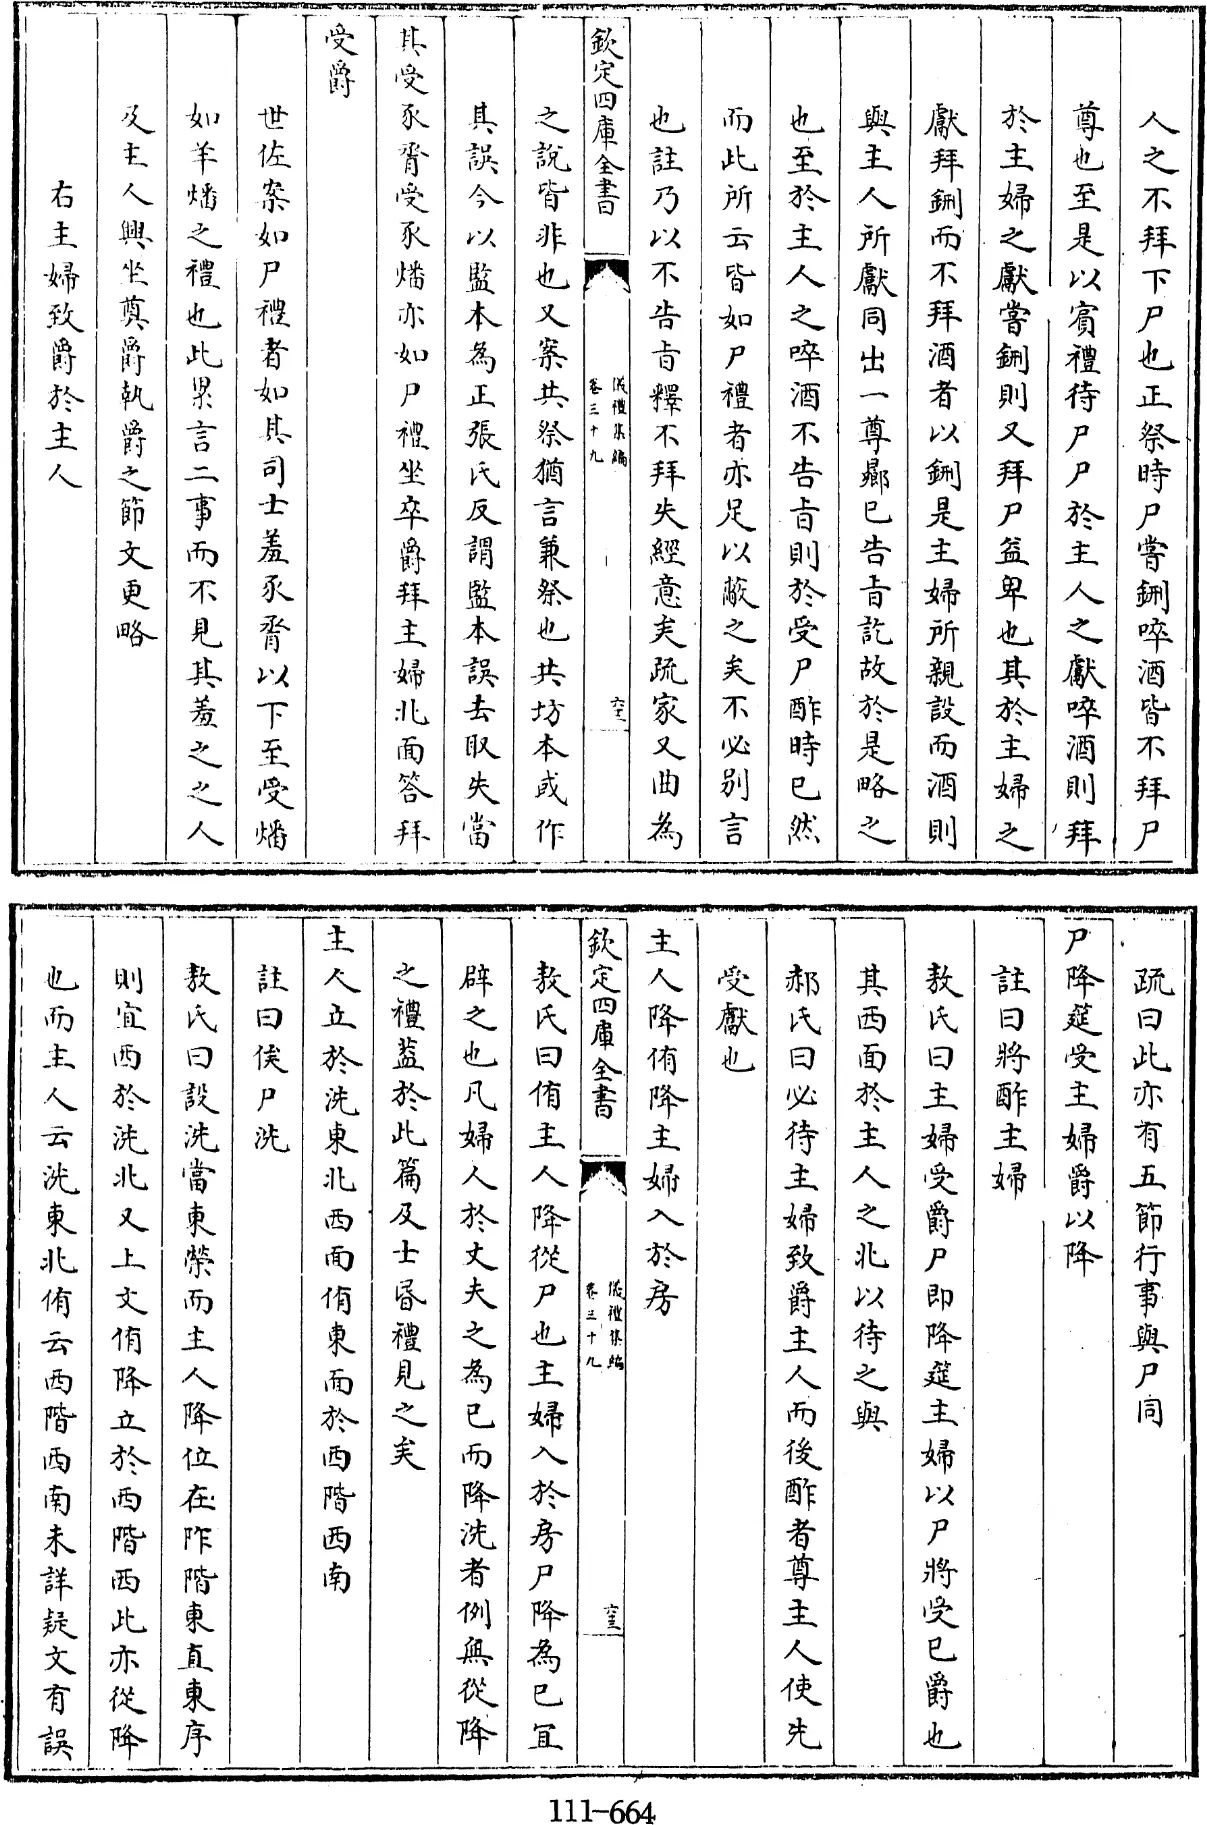 人之不拜下尸也正祭時尸嘗鉶啐酒皆不拜尸
尊也至是以賓禮待尸尸於主人之獻啐酒則拜
於主婦之獻嘗鉶則又拜尸益卑也其於主婦之
獻拜鉶而不拜酒者以鉶是主婦所親設而酒則
與主人所獻同出一尊曏已告旨訖故於是略之
也至於主人之啐酒不告旨則於受尸酢時已然
而此所云皆如尸禮者亦足以蔽之矣不必别言
也註乃以不告旨釋不拜失經意矣疏家又曲為
欽定四庫全書
儀禮集編
卷三十九
之說皆非也又案共祭猶言兼祭也共坊本或作
其誤今以監本為正張氏反謂監本誤去取失當
其受豕脀受豕燔亦如尸禮坐卒爵拜主婦北面答拜
受爵
世佐案如尸禮者如其司士羞豕脀以下至受燔
如羊燔之禮也此累言二事而不見其羞之之人
及主人興坐奠爵執爵之節文更略
右主婦致爵於主人
疏曰此亦有五節行事與尸同
尸降筵受主婦爵以降
註曰將酢主婦
敖氏曰主婦受爵尸即降筵主婦以尸將受已爵也
其西面於主人之北以待之與
郝氏曰必待主婦致爵主人而後酢者尊主人使先
受獻也
主人降侑降主婦入於房
欽定四庫全書
儀禮集編
卷三十九
敖氏曰侑主人降從尸也主婦入於房尸降為已宜
辟之也凡婦人於丈夫之為已而降洗者例無從降
之禮葢於此篇及士昏禮見之矣
主人立於洗東北西面侑東面於西階西南
註曰俟尸洗
敖氏曰設洗當東榮而主人降位在阼階東直東序
則宜西於洗北又上文侑降立於西階西此亦從降
也而主人云洗東北侑云西階西南未詳疑文有誤
111-664